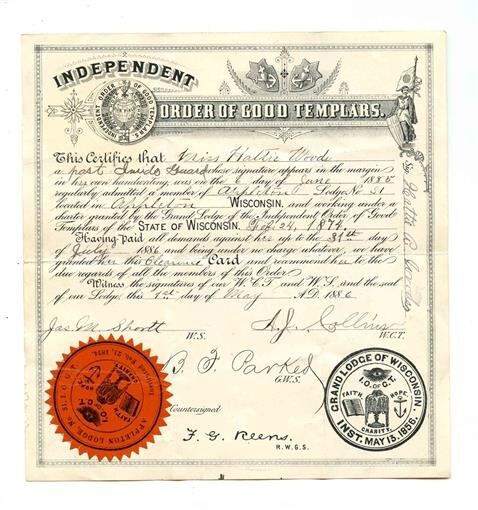 INDEPENDENT
ORDER OF GOOD TEMPLARS.
INDEPENDENT ORDER OF GOOD TEMPLARS
This Certifies that Miss Hattie Woods
a past Guard whose signature appears in the margin
in her own handwriting, was on the day of June 1885
regularly admitted a member of Appleton Lodge, No. 51
located in Appleton WISCONSIN, and working under a
charter granted by the Grand Lodge of the Independent Order of Good
Templars of the STATE OF WISCONSIN. Feb. 24, 1874.
Having paid all demands against her up to the 31st day
of July 1886 and being under no charge whatever, we have
granted her this Clearance Card and recommend her to the
due regards of all the members of this Order
Witness the signatures of our W.C.T. and W.S. and the seal
of our Lodge this 1st day of May A.D. 1886
Jas. M. Shortt
W.S.
A. J. Collins
W.C.T.
B. F. Parker
G.W.S.
Countersigned
F. G. Keens.
R.W.G.S.
APPLETON LODGE, No. 51, I.O.G.T.
Instituted Feb. 23, 1874.
I.O. of G.T.
FAITH
HOPE
CHARITY
GRAND LODGE OF WISCONSIN.
I.O. OF G.T.
FAITH
HOPE
CHARITY.
INST. MAY 15, 1856.